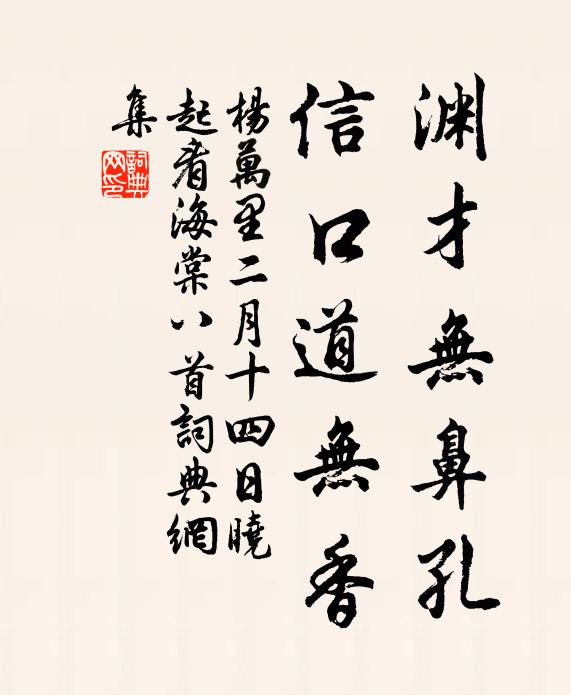 渊才無鼻孔
信口道無香
楊萬里二月十四日曉
起看海棠八首詞典網
集
詞典
网印